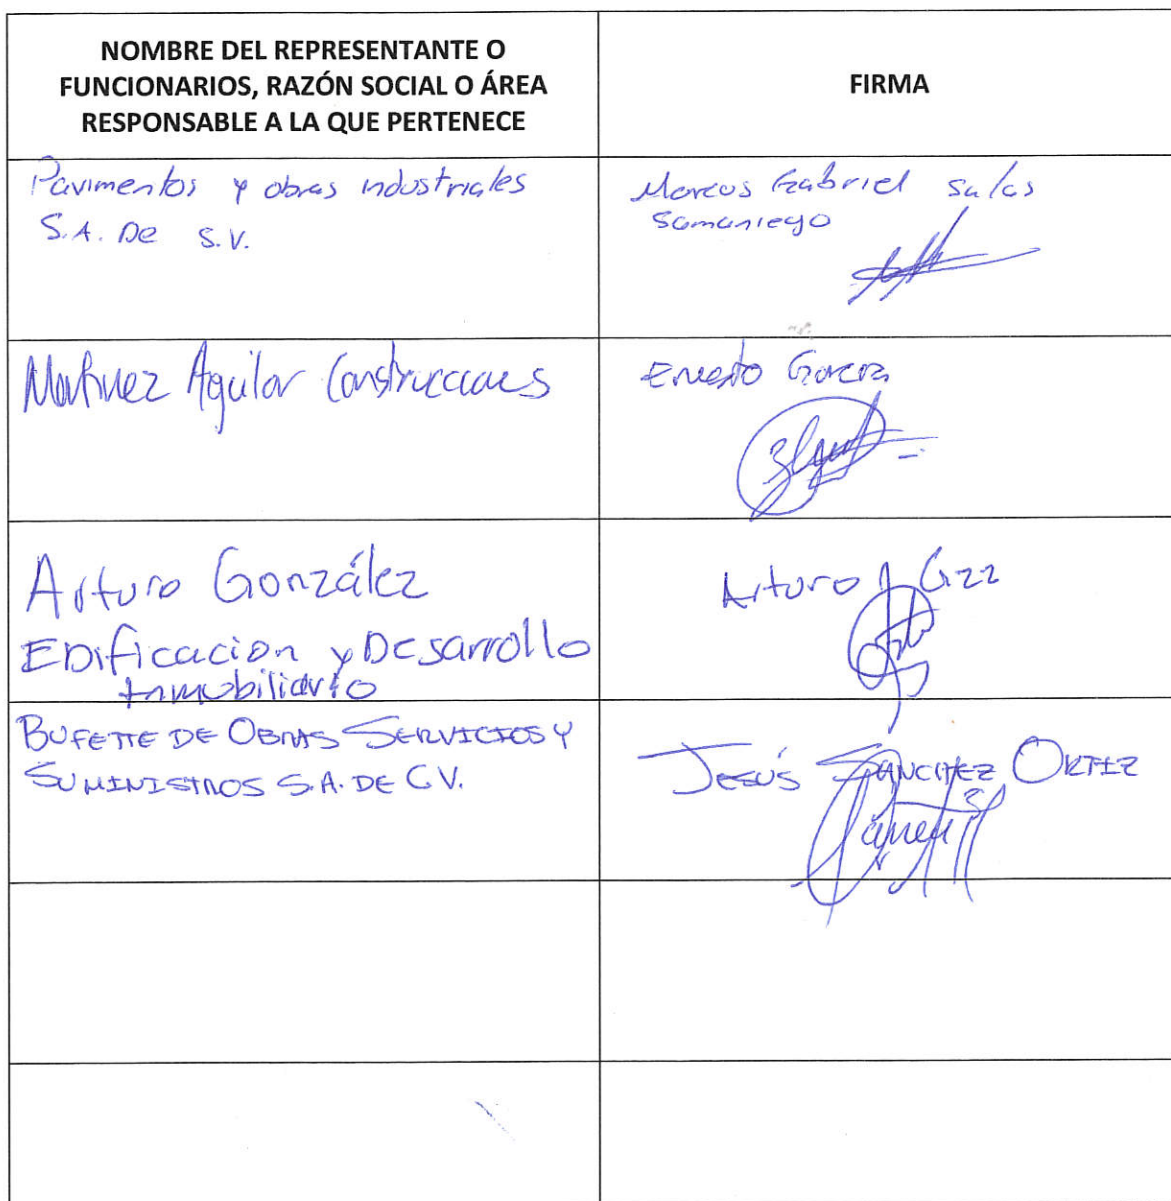 NOMBRE DEL REPRESENTANTE O
FUNCIONARIOS, RAZÓN SOCIAL O ÁREA
RESPONSABLE A LA QUE PERTENECE
FIRMA
Pavimentos y obras industriales
S.A. De S.V.
Marcos Gabriel Salas
Samaniego
Martinez Aguilar Construcciones
Ernesto Garcia
Arturo González
Edificacion y Desarrollo
Inmobiliario
Arturo Gzz
BUFETTE DE OBRAS SERVICIOS Y
SUMINISTROS S.A. DE C.V.
JESÚS SANCHEZ ORTIZ